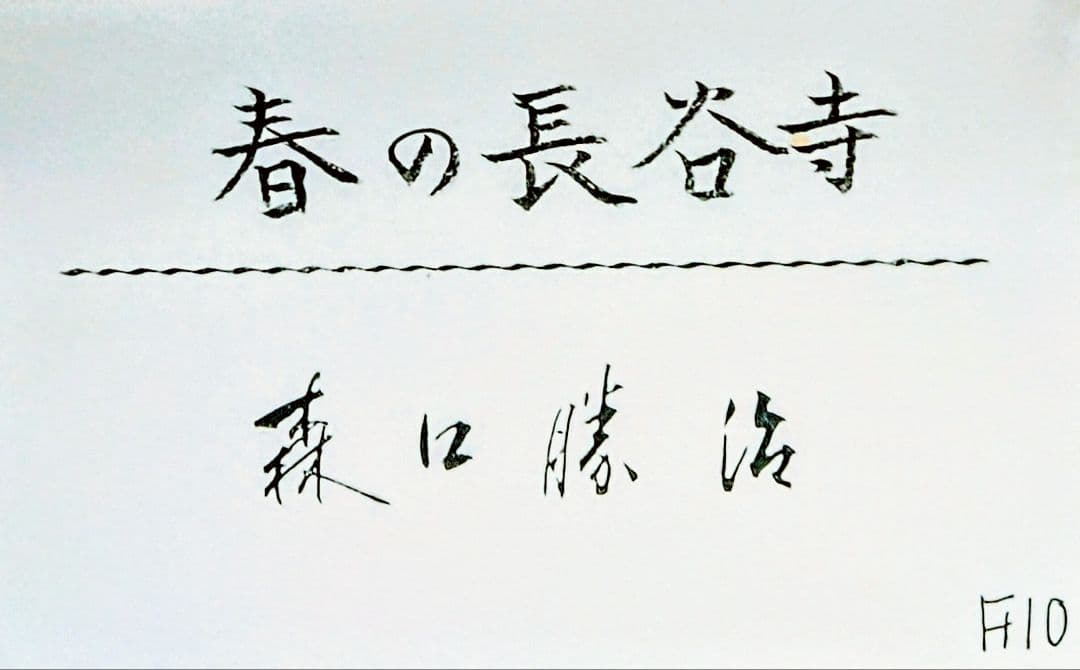 春の長谷寺
森口勝治
F10